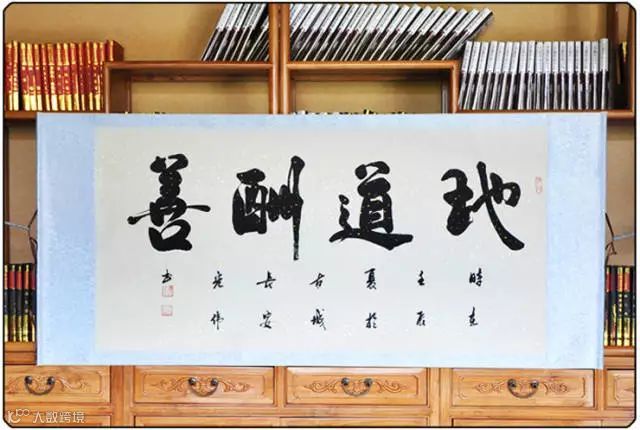 地道酬善
時在
壬辰
夏於
古城
長安
书
大数跨境